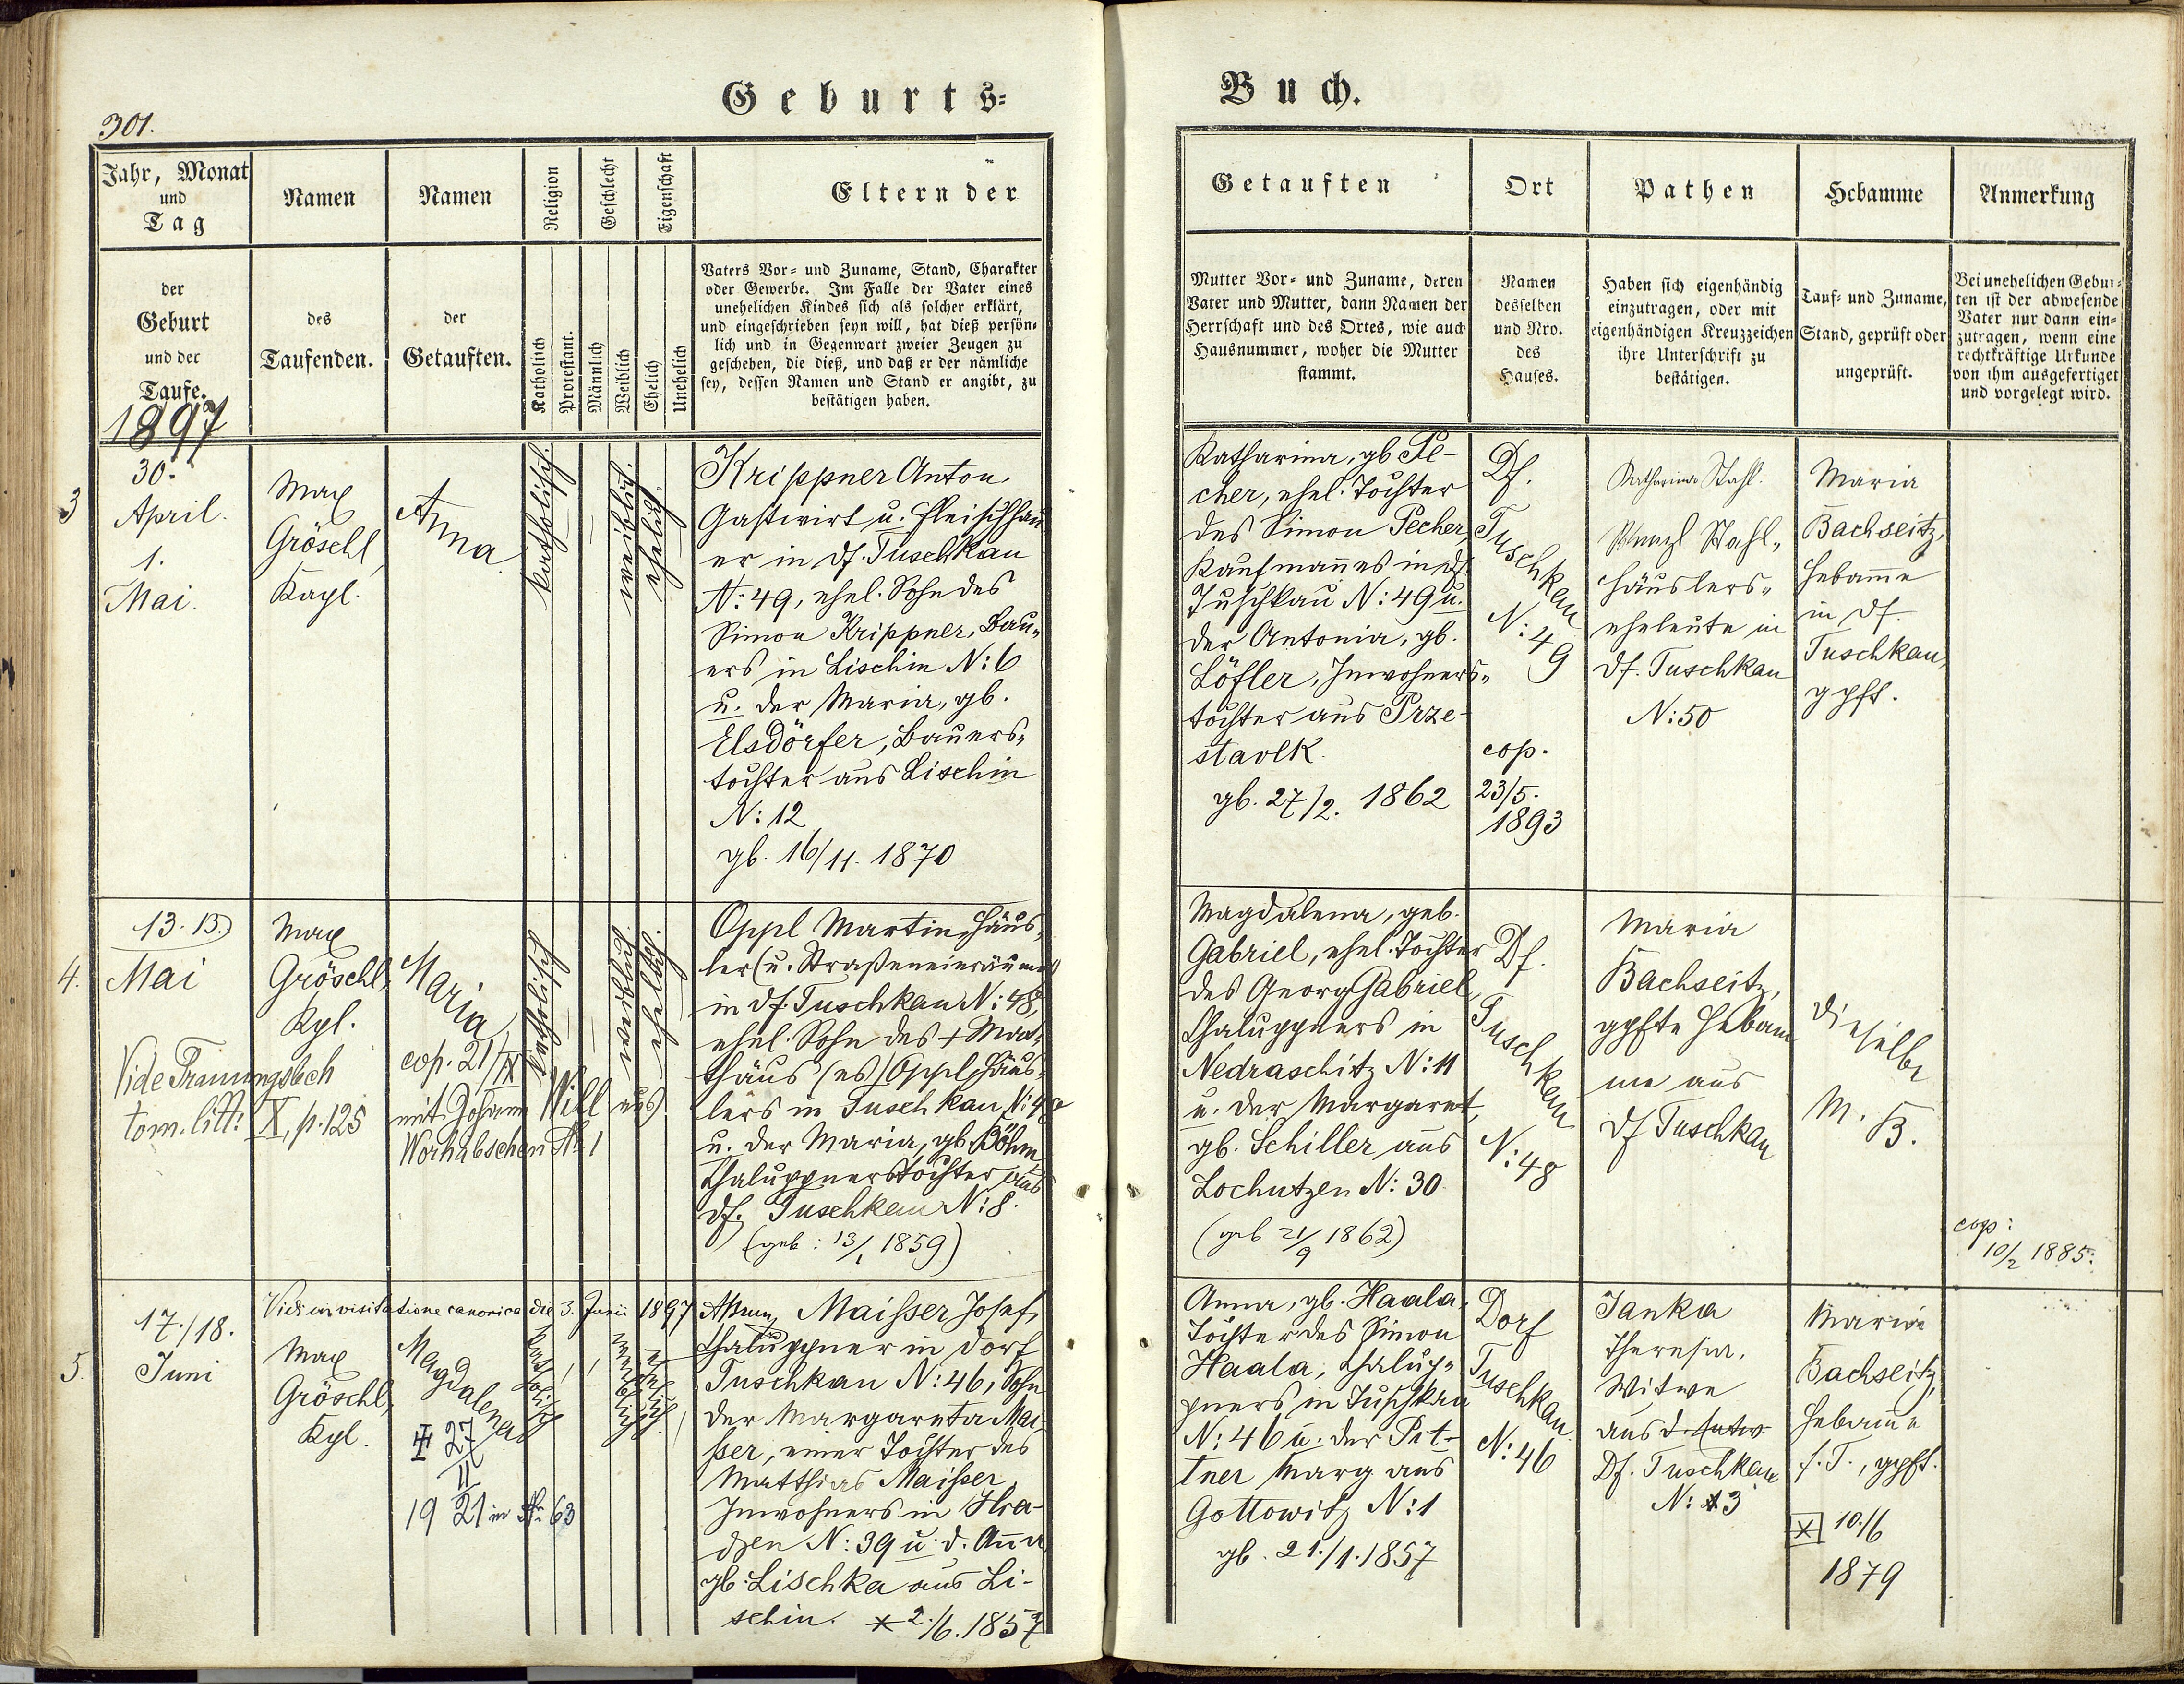 301.
Geburts=
Buch.
Jahr, Monat
und
Tag
der
Geburt
und der
Taufe.
1897
Namen
des
Taufenden.
Namen
der
Getauften.
Religion
Katholisch
Protestant.
Geschlecht
Männlich
Weiblich
Eigenschaft
Ehelich
Unehelich
Eltern der
Vaters Vor= und Zuname, Stand, Charakter
oder Gewerbe. Im Falle der Vater eines
unehelichen Kindes sich als solcher erklärt,
und eingeschrieben seyn will, hat dieß persön=
lich und in Gegenwart zweier Zeugen zu
geschehen, die dieß, und daß er der nämliche
sey, dessen Namen und Stand er angibt, zu
bestätigen haben.
Getauften
Mutter Vor= und Zuname, deren
Vater und Mutter, dann Namen der
Herrschaft und des Ortes, wie auch
Hausnummer, woher die Mutter
stammt.
Ort
Namen
desselben
und Nro.
des
Hauses.
Pathen
Haben sich eigenhändig
einzutragen, oder mit
eigenhändigen Kreuzzeichen
ihre Unterschrift zu
bestätigen.
Hebamme
Tauf= und Zuname,
Stand, geprüft oder
ungeprüft.
Anmerkung
Bei unehelichen Gebur=
ten ist der abwesende
Vater nur dann ein=
zutragen, wenn eine
rechtkräftige Urkunde
von ihm ausgefertiget
und vorgelegt wird.
3
30.
April.
1.
Mai.
Max
Gröschl,
Kapl.
Anna
katholisch.
weiblich.
ehelich.
Krippner Anton,
Gastwirt u. Fleischhau
er in Df. Tuschkau
N: 49, ehel. Sohn des
Simon Krippner, Bau=
ers in Lischin N: 6
u. der Maria, gb.
Elsdörfer, Bauers=
tochter aus Lischin
N: 12
gb. 16/11. 1870
Katharina, gb. Pe-
cher, ehel. Tochter
des Simon Pecher,
Kaufmannes in Df.
Tuschkau N: 49 u.
der Antonia, gb.
Löfler, Inwohners=
tochter aus Prze-
stavlk.
gb. 27/2. 1862
Df.
Tuschkau
N: 49
cop.
23/5.
1893
Katharina Stahl.
Stahl,
Häuslers=
eheleute in
Df. Tuschkau
N: 50
Maria
Bachseitz,
Hebamme
in Df.
Tuschkau,
gpft.
4.
13. 13.
Mai
Vide Trauungsbch
tom. litt: X, p. 125
Max
Gröschl,
Kpl.
Maria
cop. 21/IX
mit Johann Will aus
Worhabschen N: 1
katholisch
weiblich
ehelich.
Oppl Martin, Häus=
ler (u. Straßeneinräumer)
in Df. Tuschkau N: 48,
ehel. Sohn des + Mat=
thäus (es) Oppl, Häus=
lers in Tuschkau N: 48
u. der Maria, gb. Böhm
Chaluppnerstochter aus
Df. Tuschkau N: 8.
(geb: 13/1 1859)
Magdalena, geb.
Gabriel, ehel. Tochter
des Georg Gabriel,
Chaluppners in
Nedraschitz N: 11
u. der Margaret,
gb. Schiller aus
Lochutzen N: 30.
(geb 21/9 1862)
Df.
Tuschkau
N: 48
Maria
Bachseitz,
gpfte Hebam
me aus
Df Tuschkau
Dieselbe
M. B.
cop:
10/2 1885.
Vidi in visitatione canonica die 3. Junii 1897
5.
17./18.
Juni
Max
Gröschl,
Kpl.
Magdalena
27
II
1921 in N: 63
katholisch
weiblich
ehelich
Maisser Josef,
Chaluppner in Dorf
Tuschkau N: 46, Sohn
der Margareta Mai
sser, einer Tochter des
Matthias Maisser,
Inwohners in Hra-
dzen N: 39 u. d. Anna
gb. Lischka aus Li-
schin. * 2./6. 1857
Anna, gb. Haala,
Tochter des Simon
Haala, Chalup=
pners in Tuschkau
N: 46 u. der Pit-
tner Marg aus
Gottowitz N: 1
gb. 21./1. 1857
Dorf
Tuschkau
N: 46
Janka
Theresia,
Witwe
aus
Df. Tuschkau
N: 13
Maria
Bachseitz,
Hebamme
f. T., gpft.
10./6
1879